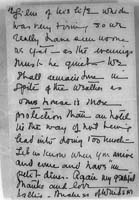 of his life which
was very trying. So we
really have seen no one
as yet - as the evenings
must be quiet. We
shall remain here in
spite of the weather as
one's house is more
protection than an hotel
in the way of not being
lead into doing too much.
Let us know when you arrive
and come and have a
quiet dinner. Again my grateful
thanks and love
Wallis Duchess of Windsor